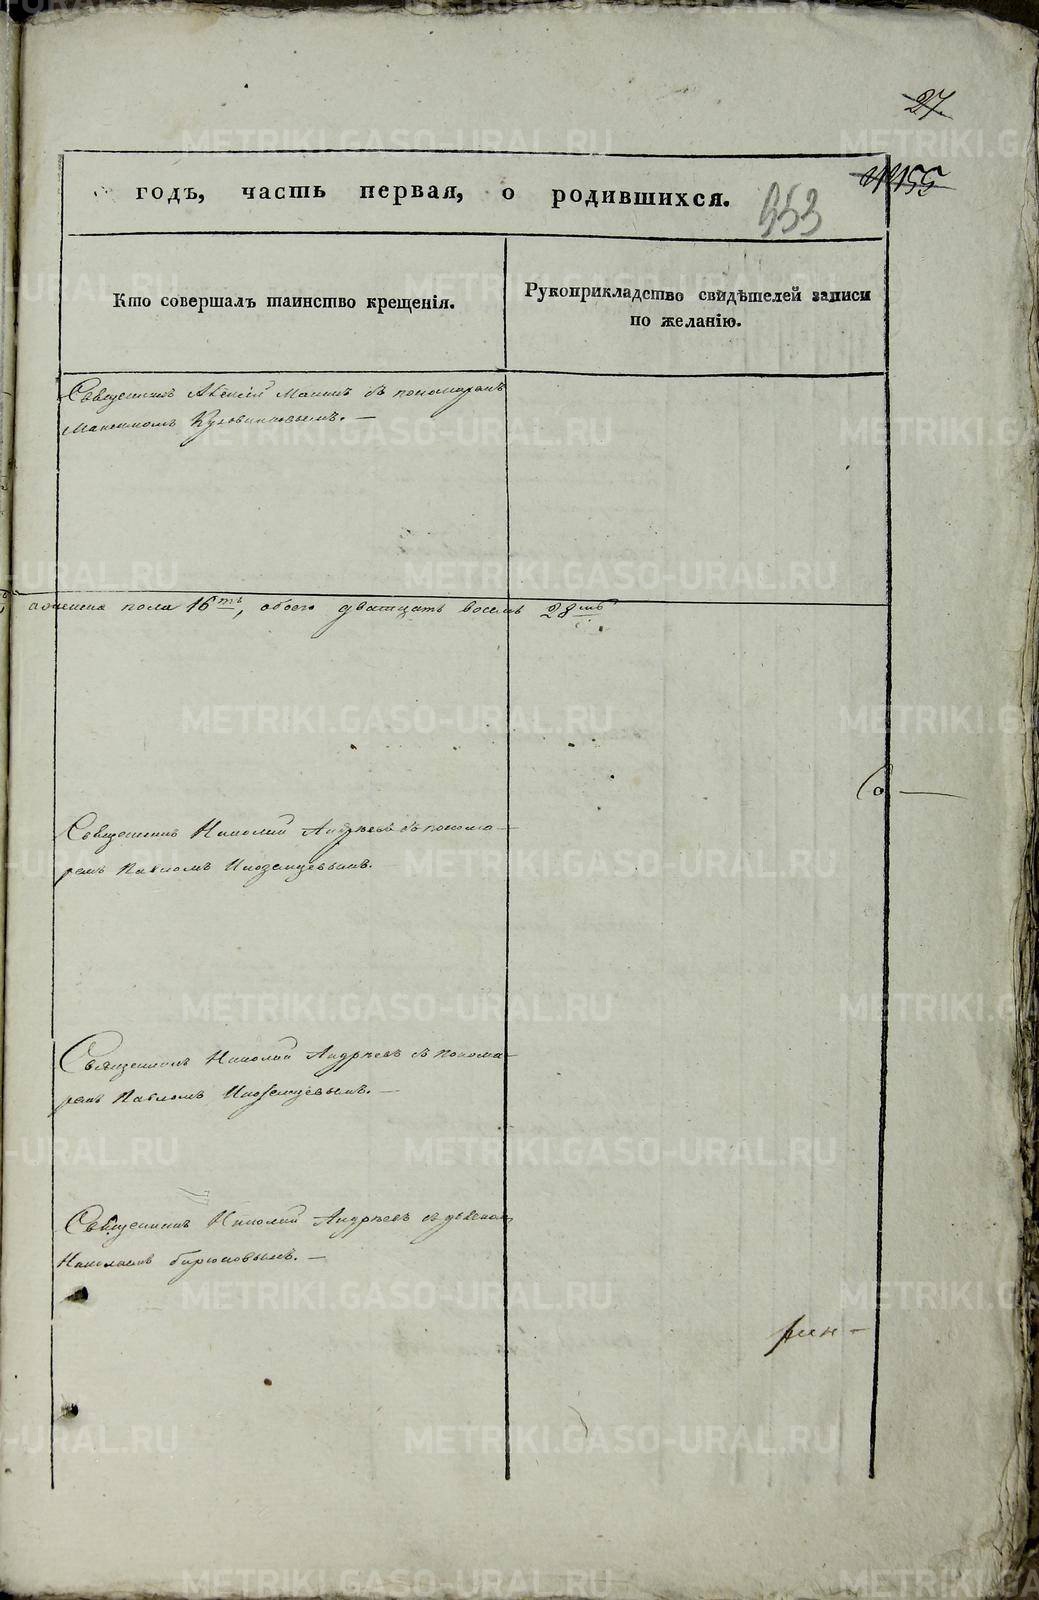 27.
№ 155
годъ, часть первая, о родившихся.
953
Кто совершалъ таинство крещенія.
Рукоприкладство свидѣтелей записи
по желанію.
Священникъ Алексій съ пономаремъ
Максимомъ
женска пола 16ть, обоего дватцать восемь 28мь
Священникъ Николай Андреевъ съ понома-
ремъ Павломъ Иноземцевымъ.
Священникъ Николай Андреевъ съ понома-
ремъ Павломъ Иноземцевымъ. —
Священникъ Николай Андреевъ съ дьякономъ
Николаемъ Бирюковымъ. —
METRIKI.GASO-URAL.RU